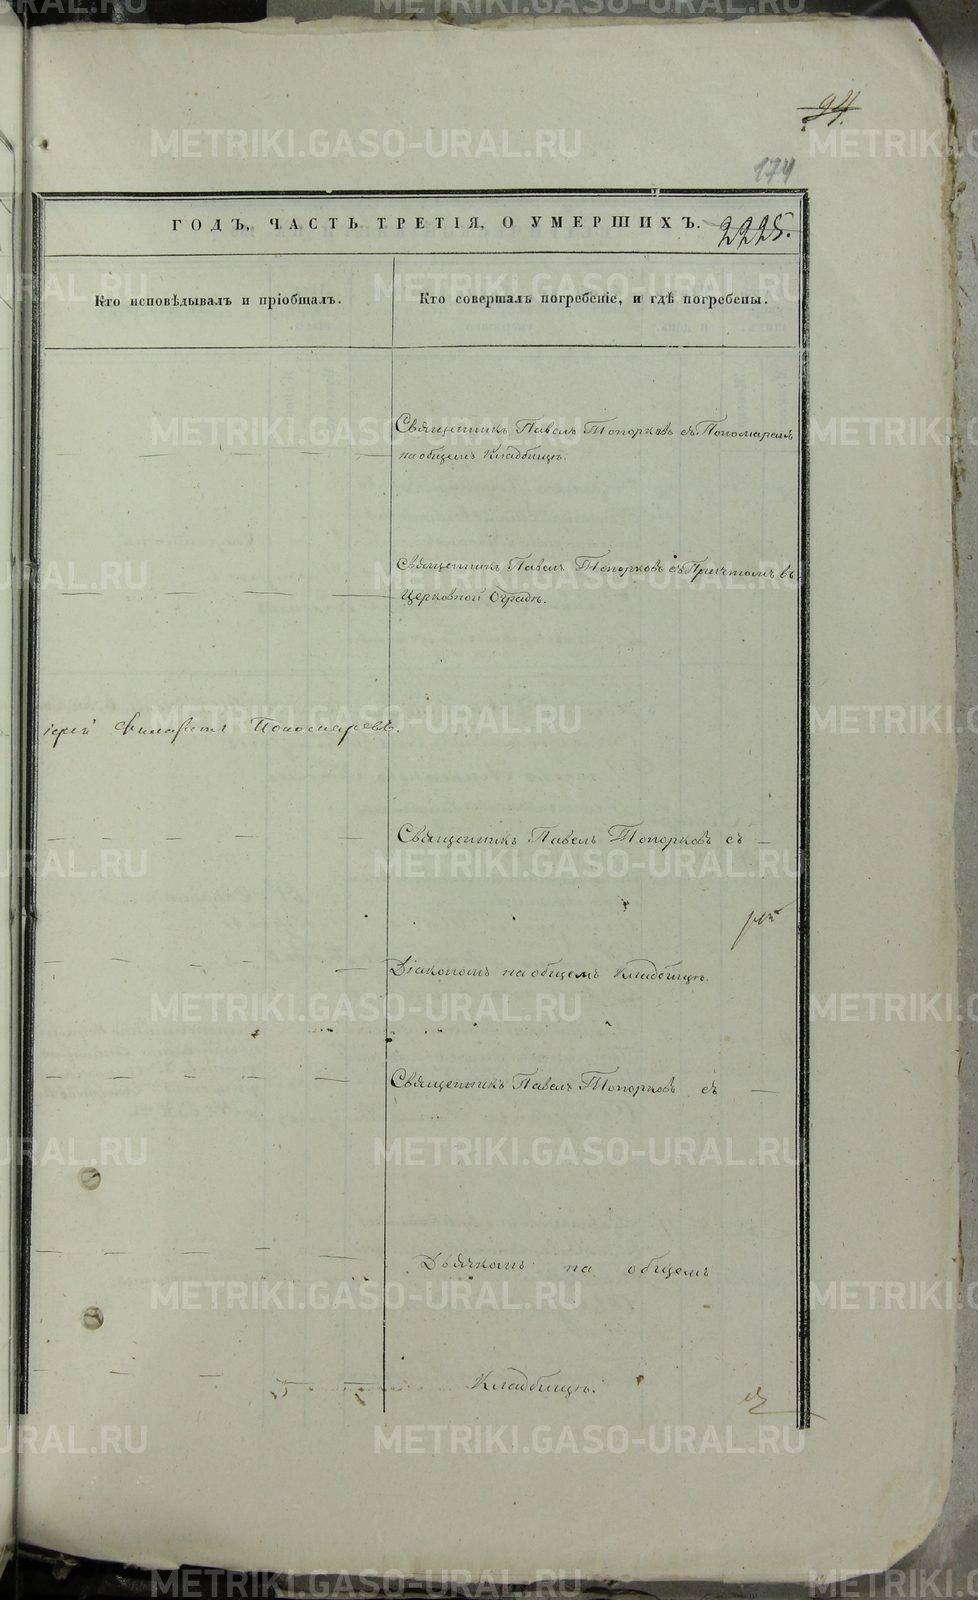 94.
174
ГОДЪ, ЧАСТЬ ТРЕТІЯ, О УМЕРШИХЪ.
2225.
Кто исповѣдывалъ и пріобщалъ.
Кто совершалъ погребеніе, и гдѣ погребены.
Священникъ Павелъ Топорковъ съ Пономаремъ
на общемъ Кладбищѣ.
Священникъ Павелъ Топорковъ съ Причтомъ въ
Церковной Оградѣ.
іерей Филаретъ Пономаревъ.
Священникъ Павелъ Топорковъ съ —
Діакономъ на общемъ Кладбищѣ.
Священникъ Павелъ Топорковъ съ —
Дьячкомъ на общемъ
Кладбищѣ.
METRIKI.GASO-URAL.RU